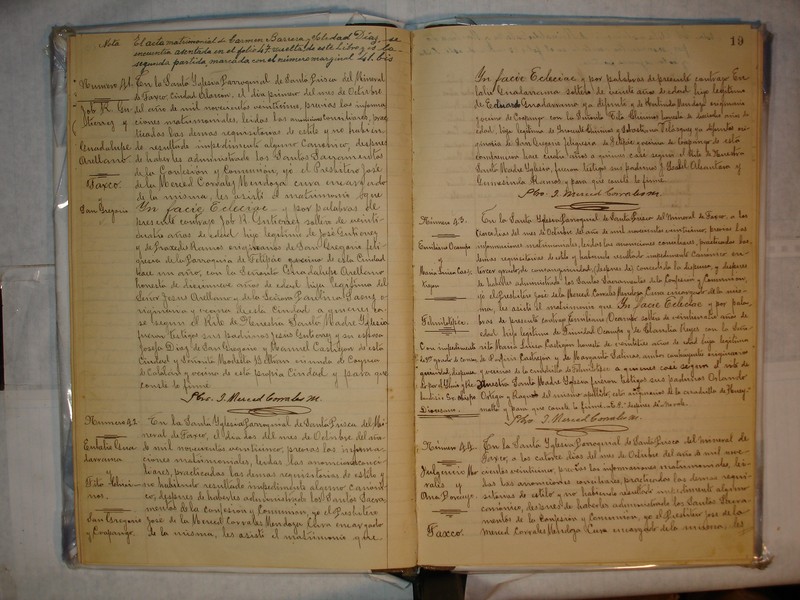 Nota El acta matrimonial de Carmen Barrera y Eledad Díaz, se
encuentra asentada en el folio 47 vuelta de este Libro, y es la
segunda partida, marcada con el número marginal 41 bis
Número 41. En la Santa Iglesia Parroquial de Santa Prisca del Mineral
de Taxco, Ciudad Alarcón, el día primero del mes de Octubre
Job R. Gu- del año de mil novecientos veintiuno, previas las informa
tierrez y ciones matrimoniales, leidas las conciliares, prac
ticadas las demas requisitorias de estilo y no habien
Guadalupe do resultado impedimento alguno Canónico, despues
Arellano de haberles administrado los Santos Sacramentos
de la Confesion y Comunion, yo el Presbítero José
Taxco. de la Merced Corrales Mendoza Cura encargado
de la misma, les asistí el matrimonio que
San Gregorio In facie Ecleciae y por palabras de
presente contrajo Job R. Gutiérrez soltero de veinti
cuatro años de edad hijo legítimo de José Gutierrez
y de Praxedis Ramos originario de San Gregorio feli
gresía de la Parroquia de y vecino de esta Ciudad
hace un año, con la Señorita Guadalupe Arellano
honesta de diecinueve años de edad hija legítima del
Señor Jesus Arellano y de la Señora Paulina Saenz o-
riginaria y vecina de esta Ciudad a quienes ca
se segun el Rito de Nuestra Santa Madre Iglesia
fueron testigos sus padrinos Jesus Gutierrez y su esposa
Josefa Diaz de San Gregorio y Manuel Castrejon de esta
Ciudad y Vicente Modesto viudo de
de Catalan y vecino de esta propia Ciudad y para que
conste lo firmé.
Pbro. J. Merced Corrales M.
Número 42. En la Santa Iglesia Parroquial de Santa Prisca del Mi
neral de Taxco, el día dos del mes de Octubre del año
Eulalio Gua- de mil novecientos veintiuno, previas las informa
darrama ciones matrimoniales, leidas las conci
y liares, practicadas las demas requisitorias de estilo y
no habiendo resultado impedimento alguno Canóni
co, despues de haberles administrado los Santos Sacra
mentos de la Confesion y Comunion, yo el Presbítero
San Gregorio José de la Merced Corrales Mendoza Cura encargado
y Coapango. de la misma, les asistí el matrimonio que
19
In facie Ecleciae y por palabras de presente contrajo Eu
lalio Guadarrama soltero de veinte años de edad hijo legítimo
de Eduardo Guadarrama ya difunto y de Mendoza originario
y vecino de Coapango con la honesta de años de
edad, hija legítima de y de Velasquez ya difuntos ori
ginaria de San Gregorio feligresía de y vecina de Coapango de esta
hace cuatro años a quienes case segun el Rito de Nuestra
Santa Madre Iglesia, fueron testigos sus padrinos J. Isabel y
Ramos, y para que conste lo firmé.
Pbro. J. Merced Corrales M.
Número 43. En la Santa Iglesia Parroquial de Santa Prisca del Mineral de Taxco, a los
del mes de Octubre del año de mil novecientos veintiuno, previas las
Emiliano Ocampo informaciones matrimoniales, leidas las conciliares, practicadas las
y demas requisitorias de estilo y habiendo resultado impedimento Canónico en
María Luisa Cas- tercer grado de consanguinidad, despues de concedida la dispensa, y despues
trejon de haberles administrado los Santos Sacramentos de la Confesion y Comunion,
yo el Presbítero José de la Merced Corrales Mendoza Cura encargado de la mis
ma, les asistí el matrimonio que In facie Eclecia y por pala
bras de presente contrajo Emiliano Ocampo soltero de años de
edad hijo legítimo de Trinidad Ocampo y de Reyes con la Seño
Con impedimento rita María Luisa Castrejon honesta de veintiseis años de edad hija legítima
de 3er. grado de consan de Castrejon y de Margarita Salinas, ambos contrayentes originarios
guinidad, dispensa y vecinos de la cuadrilla de a quienes case segun el rito de
Nuestra Santa Madre Iglesia fueron testigos sus padrinos Orlando
Obispo Ortega y del mismo apellido, esta originaria de la cuadrilla de
Diocesano. y para que conste lo firmé.
Pbro. J. Merced Corrales M.
Número 44. En la Santa Iglesia Parroquial de Santa Prisca del mineral de
Taxco, a los catorce días del mes de Octubre del año de mil nove
cientos veintiuno, previas las informaciones matrimoniales, lei
rales y das las conciliares, practicadas las demas requi
Ana Domingz. sitorias de estilo, y no habiendo resultado impedimento alguno
canónico, despues de haberles administrado los Santos Sacra
mentos de la Confesion y Comunion, yo el Presbítero José de la
Taxco. Merced Corrales Mendoza Cura encargado de la misma, les